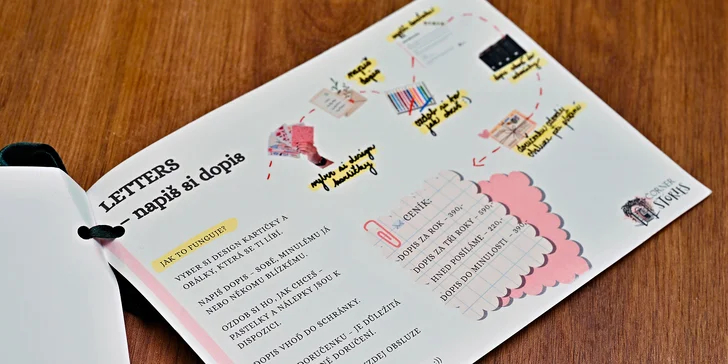 LETTERS
– napiš si dopis
JAK TO FUNGUJE?
VYBER SI DESIGN KARTIČKY A
OBÁLKY, KTERÁ SE TI LÍBÍ.
NAPIŠ DOPIS – SOBĚ, MINULÉMU JÁ
NEBO NĚKOMU BLÍZKÉMU.
OZDOB SI HO, JAK CHCEŠ –
PASTELKY A NÁLEPKY JSOU K
DISPOZICI.
DOPIS VHOĎ DO SCHRÁNKY.
DORUČENKU – JE DŮLEŽITÁ
DORUČENÍ.
OBSLUZE
vyber si design
kartičky
napiš
dopis
ozdob si ho,
jak chceš
CENÍK:
DOPIS ZA ROK – 390,-
DOPIS ZA TŘI ROKY – 590,-
IHNED POSÍLÁME – 220,-
DOPIS DO MINULOSTI – 390,-
CORNER
STORIES